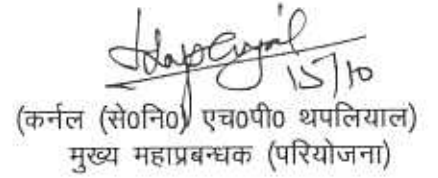 15/10
(कर्नल (से०नि०) एच०पी० थपलियाल)
मुख्य महाप्रबन्धक (परियोजना)